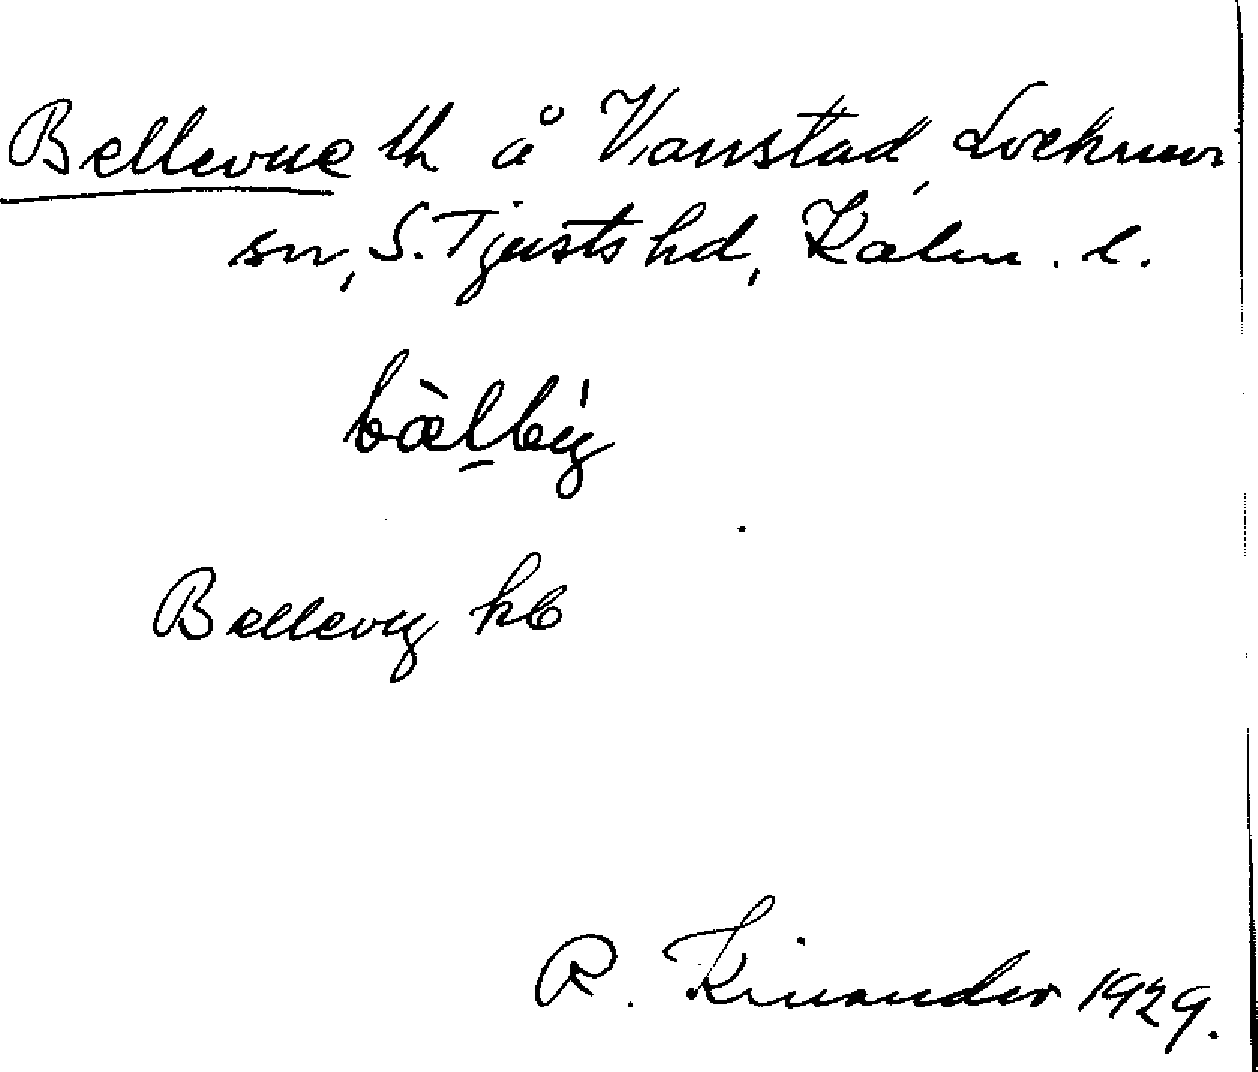 Bellevue lh å Vanstad, Locknevi
sn, S. Tjusts hd, Kalm. l.
bæ̀lbiy
Bellevy kb
R. Kinander 1929.